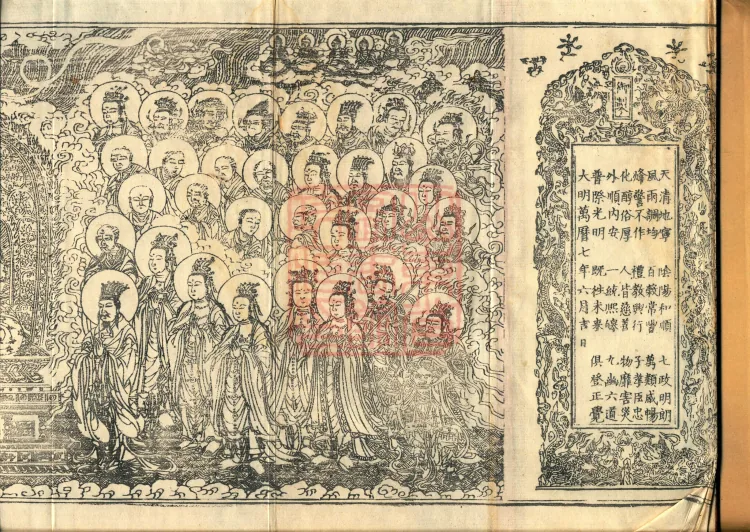 天清地寧 陰陽和順 七政明朗
風雨調均 百穀常豐 萬類咸暢
烽警不作 禮教興行 子孝臣忠
化醇俗厚 人皆慈善 物靡害災
外順內安 一統熙皞 九幽六道
普際光明 既往未來 俱登正覺
大明萬曆七年六月吉日